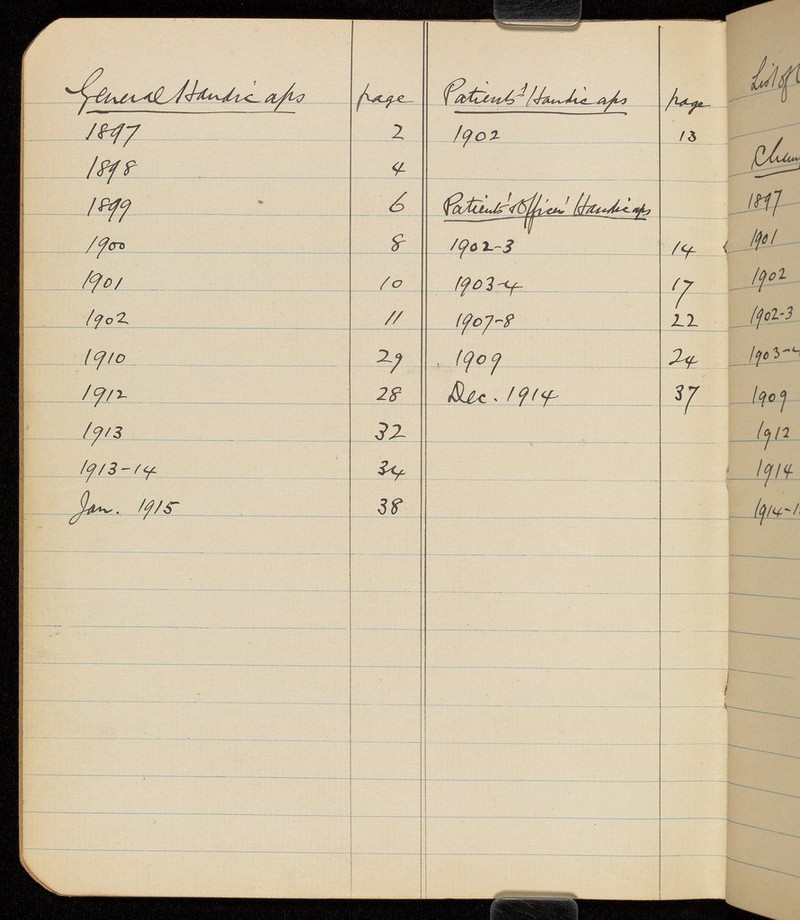 General Handicaps page
1897 2
1898 4
1899 6
1900 8
1901 10
1902 11
1910 29
1912 28
1913 32
1913-14 34
Jan. 1915 38
Patients' Handicaps page
1902 13
Patients' & Officers' Handicaps
1902-3 14
1903-4 17
1907-8 22
1909 24
Dec. 1914 37
List of
1897
1901
1902
1902-3
1903-4
1909
1912
1914